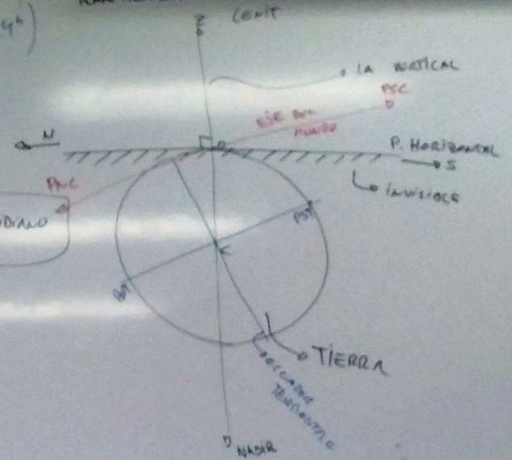 CENIT
LA VERTICAL
PSC
EJE DEL
MUNDO
N
P. HORIZONTAL
S
INVISIBLE
PNC
DIANO
PST
C
TIERRA
ECUADOR
TERRESTRE
NADIR